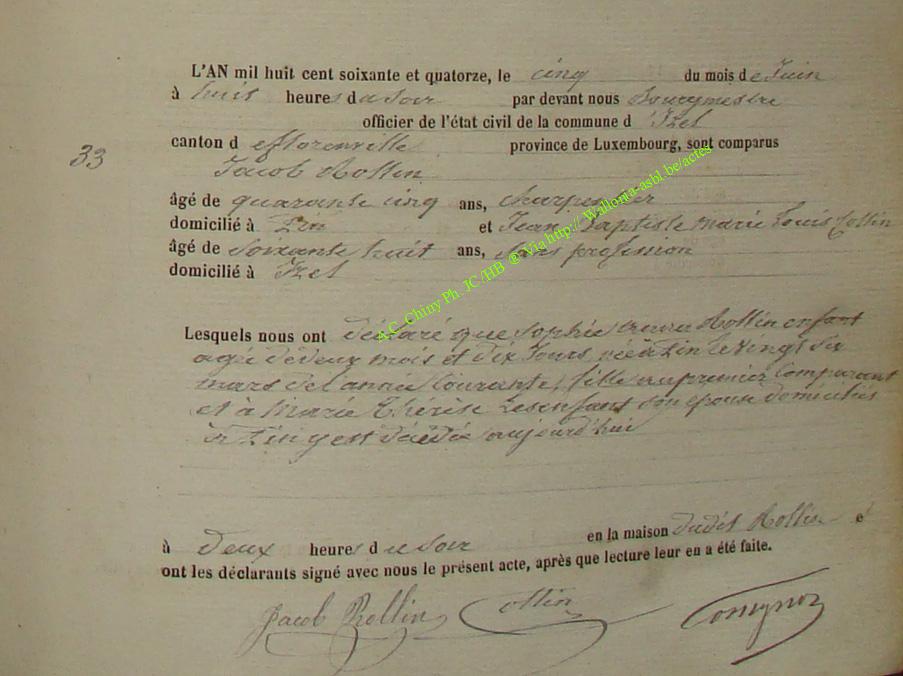 L'AN mil huit cent soixante et quatorze, le cinq du mois de Juin
à huit heures du soir par devant nous Bourgmestre
officier de l'état civil de la commune d'Izel
33
canton de florenville province de Luxembourg, sont comparus
Jacob Rollin
âgé de quarante cinq ans, charpentier
domicilié à Pin et Jean Baptiste Marie Louis Collin
âgé de soixante huit ans, sans profession
domicilié à Izel
A.C. Chiny Ph. JC/HB @ Via http://Wallonia-asbl.be/actes
Lesquels nous ont déclaré que Sophie Rollin enfant
agée de deux mois et dix Jours, née à Pin le vingt six
mars de l'année Courante, fille au premier Comparant
et à Marie Thérèse Lesenfant son épouse domiciliés
à Pin y est décédée aujourd'hui
à deux heures du soir en la maison dudit Rollin et
ont les déclarants signé avec nous le présent acte, après que lecture leur en a été faite.
Jacob Rollin Collin